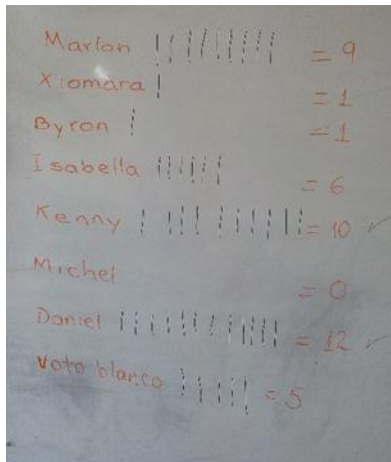 Marlon = 9
Xiomara = 1
Byron = 1
Isabella = 6
Kenny = 10
Michel = 0
Daniel = 12
Voto blanco = 5